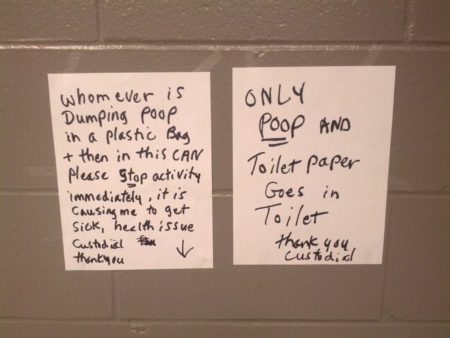 Whomever is
Dumping Poop
in a Plastic Bag
+ then in this CAN
Please Stop activity
immediately, it is
Causing me to get
Sick, health issue
Custodial
thank you
ONLY
POOP AND
Toilet paper
Goes in
Toilet
thank you
Custodial